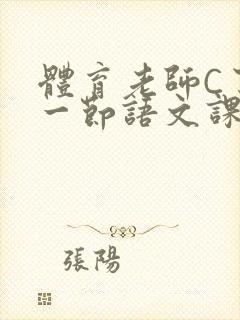 體育老師C
一節語文課
張陽